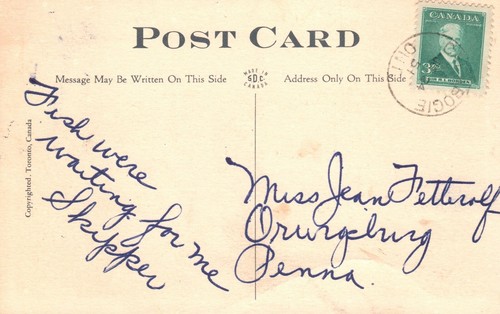 POST CARD
Message May Be Written On This Side
MADE IN
CANADA
Address Only On This Side
CANADA
3
OGIE
ONT
Copyrighted, Toronto, Canada
Fish were
waiting for me
Skipper
Miss Jean Fetterolf
Orwigsburg
Penna.